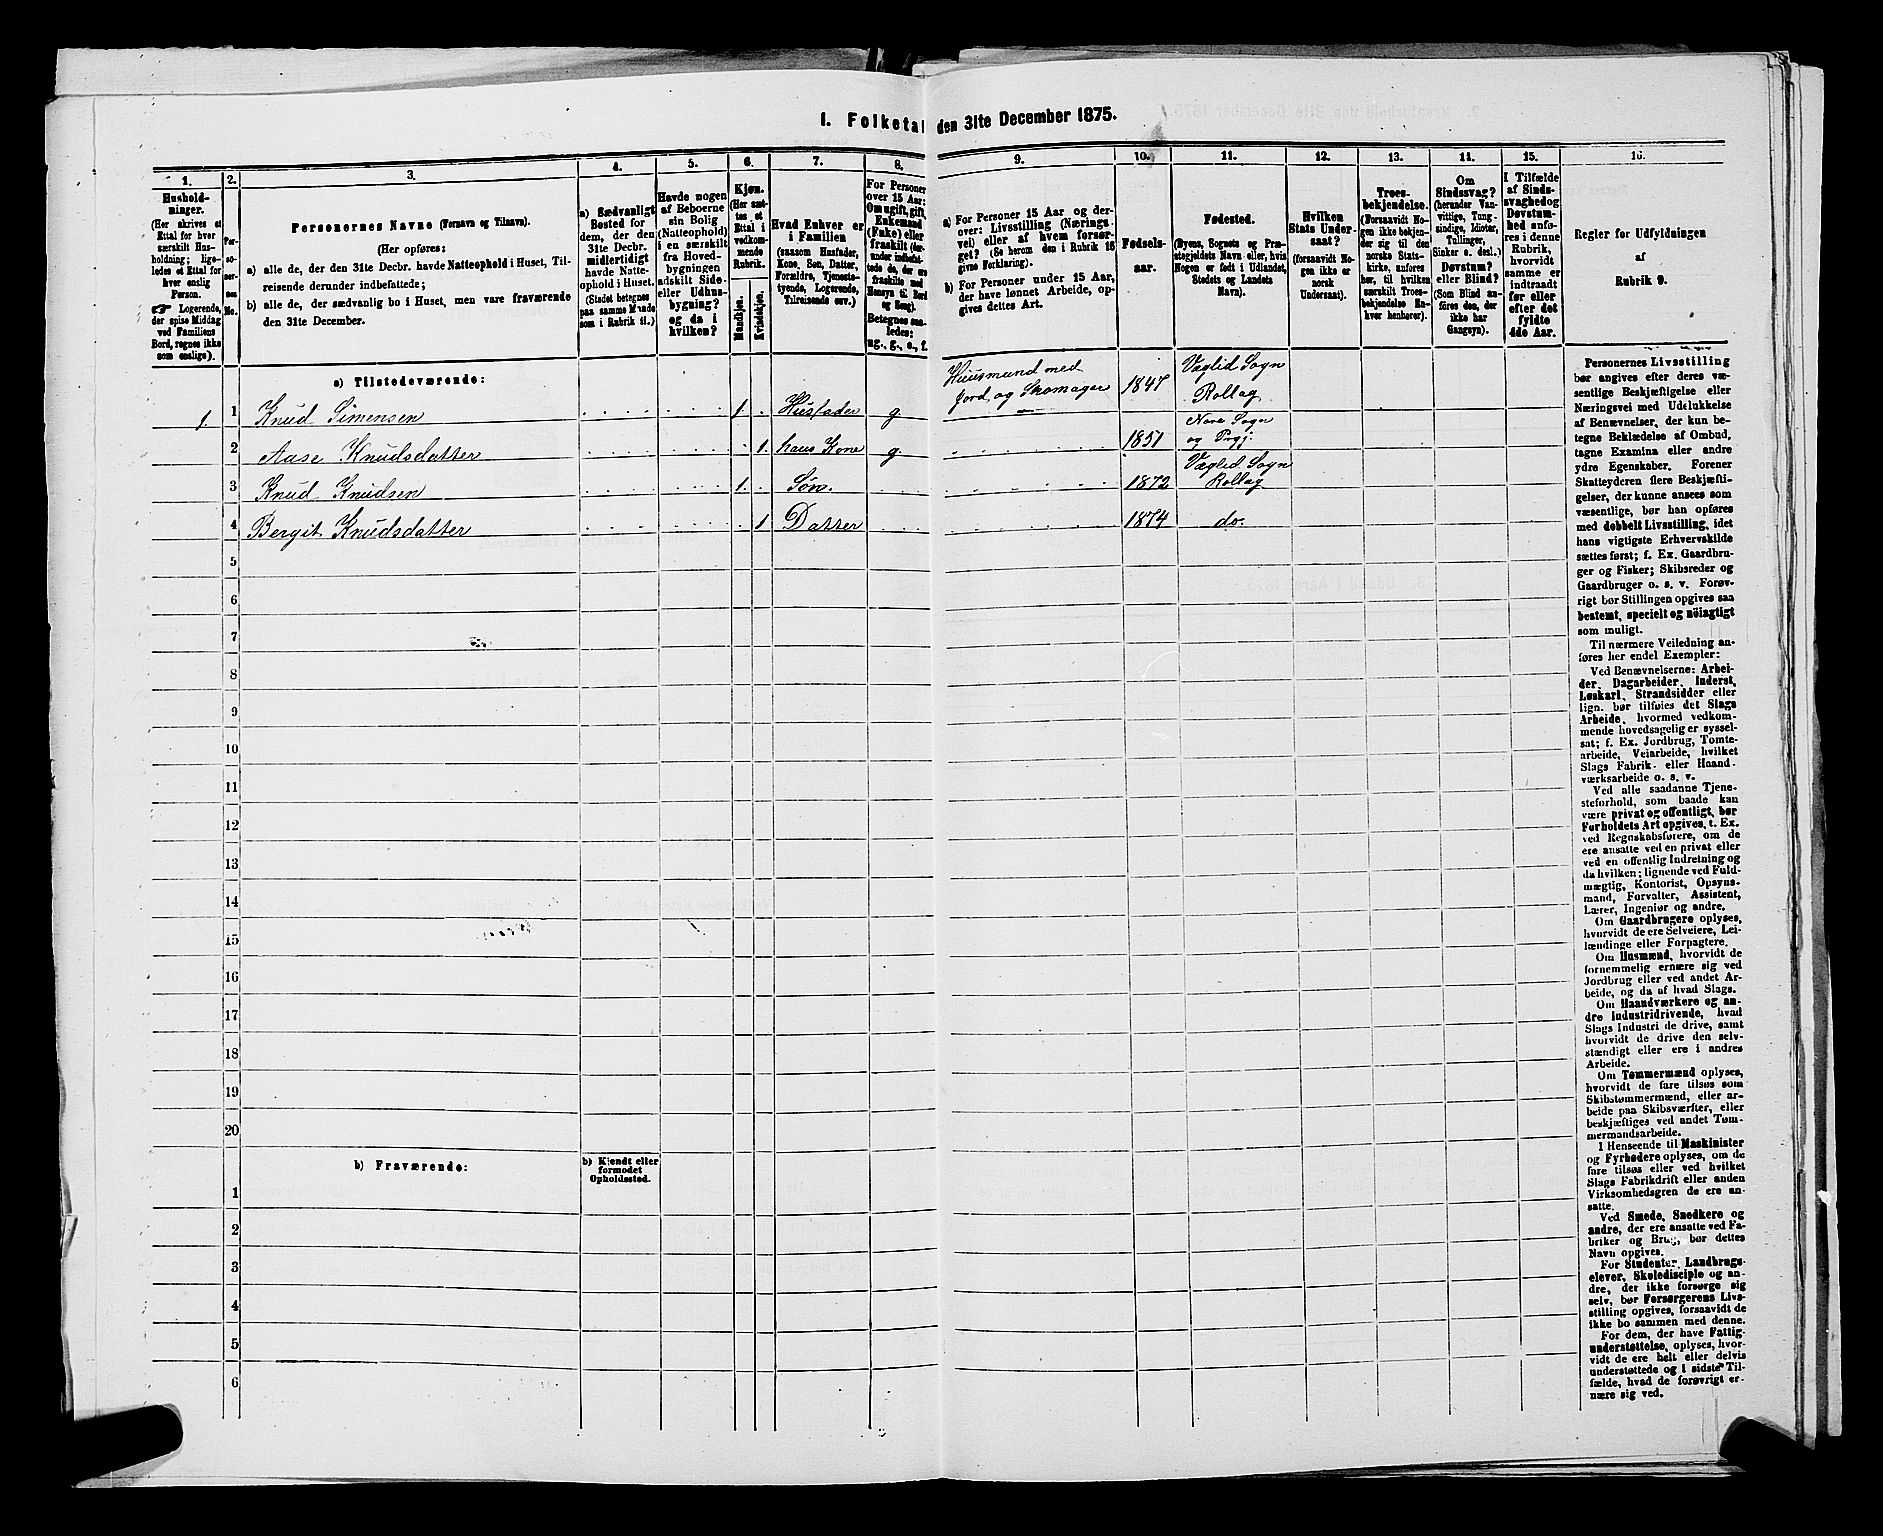 I. Folketal den 31te December 1875.
1. 2. 3. 4. 5. 6. 7. 8. 9. 10. 11. 12. 13. 14. 15. 16.
Hushold-
ninger.
(Her skrives et
Ettal for hver
særskilt Hus-
holdning; lige-
ledes et Ettal for
hver enslig
Person.
☞ Logerende,
der spise Middag
ved Familiens
Bord, regnes ikke
som enslige).
Per-
so-
ner-
nes
No.
Personernes Navne (Fornavn og Tilnavn).
(Her opføres:
a) alle de, der den 31te Decbr. havde Natteophold i Huset, Til-
reisende derunder indbefattede;
b) alle de, der sædvanlig bo i Huset, men vare fraværende
den 31te December.
a) Sædvanligt
Bosted for
dem, der den
31te Decbr.
midlertidigt
havde Natte-
ophold i Huset.
(Stedet betegnes
paa samme Maade
som i Rubrik 11.)
Havde nogen
af Beboerne
sin Bolig
(Natteophold)
i en særskilt
fra Hoved-
bygningen
adskilt Side-
eller Udhus-
bygning?
og da i
hvilken?
Kjøn.
(Her sæt-
tes et
Ettal i
vedkom-
mende
Rubrik.
Mandkjøn.
Kvindekjøn.
Hvad Enhver er
i Familien
(saasom Husfader,
Kone, Søn, Datter,
Forældre, Tjeneste-
tyende, Logerende,
Tilreisende osv.)
For Personer
over 15 Aar:
Om ugift, gift,
Enkemand
(Enke) eller
fraskilt (der-
under indbefat-
tede de, der ere
fraskilte med
Hensyn til Bord
og Seng).
Betegnes saa-
ledes:
ug., g., e., f.
a) For Personer 15 Aar og der-
over: Livsstilling (Nærings-
vei) eller af hvem forsør-
get? (Se herom den i Rubrik 16
givne Forklaring).
b) For Personer under 15 Aar,
der have lønnet Arbeide, op-
gives dettes Art.
Fødsels-
aar.
Fødested.
(Byens, Sognets og Præ-
stegjeldets Navn eller, hvis
Nogen er født i Udlandet,
Stedets og Landets
Navn).
Hvilken
Stats Under-
saat?
(forsaavidt No-
gen ikke er
norsk
Undersaat).
Troes-
bekjendelse.
(Forsaavidt No-
gen ikke bekjen-
der sig til den
norske Stats-
kirke, anføres
her, til hvilken
særskilt Troes-
bekjendelse En-
hver henhører).
Om
Sindssvag?
(herunder Van-
vittige, Tung-
sindige, Idioter,
Tullinger,
Sinker o. desl.).
Døvstum?
eller Blind?
(Som Blind an-
føres den, der
ikke har
Gangsyn).
I Tilfælde
af Sinds-
svaghed og
Døvstum-
hed anfø-
res i denne
Rubrik,
hvorvidt
samme er
indtraadt
før eller
efter det
fyldte
4de Aar.
Regler for Udfyldningen
af
Rubrik 9.
a) Tilstedeværende:
Huusmand med
Væglid Sogn
1. 1 Knud Simensen 1. Husfader g Jord og Skomager 1847 Rollag
Nore Sogn
2 Aase Knudsdatter 1. hans Kone g. 1851 og Prgj.
Væglid Sogn
3 Knud Knudsen 1. Søn. 1872 Rollag
4 Bergit Knudsdatter 1 Datter 1874 do.
5
6
7
8
9
10
11
12
13
14
15
16
17
18
19
20
b) Fraværende:
b) Kjendt eller
formodet
Opholdssted.
1
2
3
4
5
6
Personernes Livsstilling
bør angives efter deres væ-
sentlige Beskjæftigelse eller
Næringsvei med Udelukkelse
af Benævnelser, der kun be-
tegne Beklædelse af Ombud,
tagne Examina eller andre
ydre Egenskaber. Forener
Skatteyderen flere Beskjæfti-
gelser, der kunne ansees som
væsentlige, bør han opføres
med dobbelt Livsstilling, idet
hans vigtigste Erhvervskilde
sættes først; f. Ex. Gaardbru-
ger og Fisker; Skibsreder og
Gaardbruger o. s. v. Forøv-
rigt bør Stillingen opgives saa
bestemt, specielt og nöiagtigt
som muligt.
Til nærmere Veiledning an-
føres her endel Exempler:
Ved Benævnelserne: Arbei-
der, Dagarbeider, Inderst,
Løskarl, Strandsidder eller
lign. bør tilføies det Slags
Arbeide, hvormed vedkom-
mende hovedsagelig er syssel-
sat; f. Ex. Jordbrug, Tomte-
arbeide, Veiarbeide, hvilket
Slags Fabrik- eller Haand-
værksarbeide o. s. v.
Ved alle saadanne Tjene-
steforhold, som baade kan
være privat og offentligt, bør
Forholdets Art opgives, t. Ex.
ved Regnskabsførere, om de
ere ansatte ved en privat eller
ved en offentlig Indretning og
da hvilken; lignende ved Fuld-
mægtig, Kontorist, Opsyns-
mand, Forvalter, Assistent,
Lærer, Ingeniør og andre.
Om Gaardbrugere oplyses,
hvorvidt de ere Selveiere, Lei-
lændinge eller Forpagtere.
Om Husmænd, hvorvidt de
fornemmelig ernære sig ved
Jordbrug eller ved andet Ar-
beide, og da af hvad Slags.
Om Haandværkere og an-
dre Industridrivende, hvad
Slags Industri de drive, samt
hvorvidt de drive den selv-
stændigt eller ere i andres
Arbeide.
Om Tømmermænd oplyses,
hvorvidt de fare tilsøs som
Skibstømmermænd, eller ar-
beide paa Skibsværfter, eller
beskjæftiges ved andet Tøm-
mermandsarbeide.
I Henseende til Maskinister
og Fyrbødere oplyses, om de
fare tilsøs eller ved hvilket
Slags Fabrikdrift eller anden
Virksomhedsgren de ere an-
satte.
Ved Smede, Snedkere og
andre, der ere ansatte ved Fa-
briker og Brug, bør dettes
Navn opgives.
For Studenter, Landbrugs-
elever, Skoledisciple og an-
dre, der ikke forsørge sig
selv, bør Forsørgerens Livs-
stilling opgives, forsaavidt de
ikke bo sammen med denne.
For dem, der have Fattig-
understøttelse, oplyses, hvor-
vidt de ere helt eller delvis
understøttede og i sidste Til-
fælde, hvad de forøvrigt er-
nære sig ved.